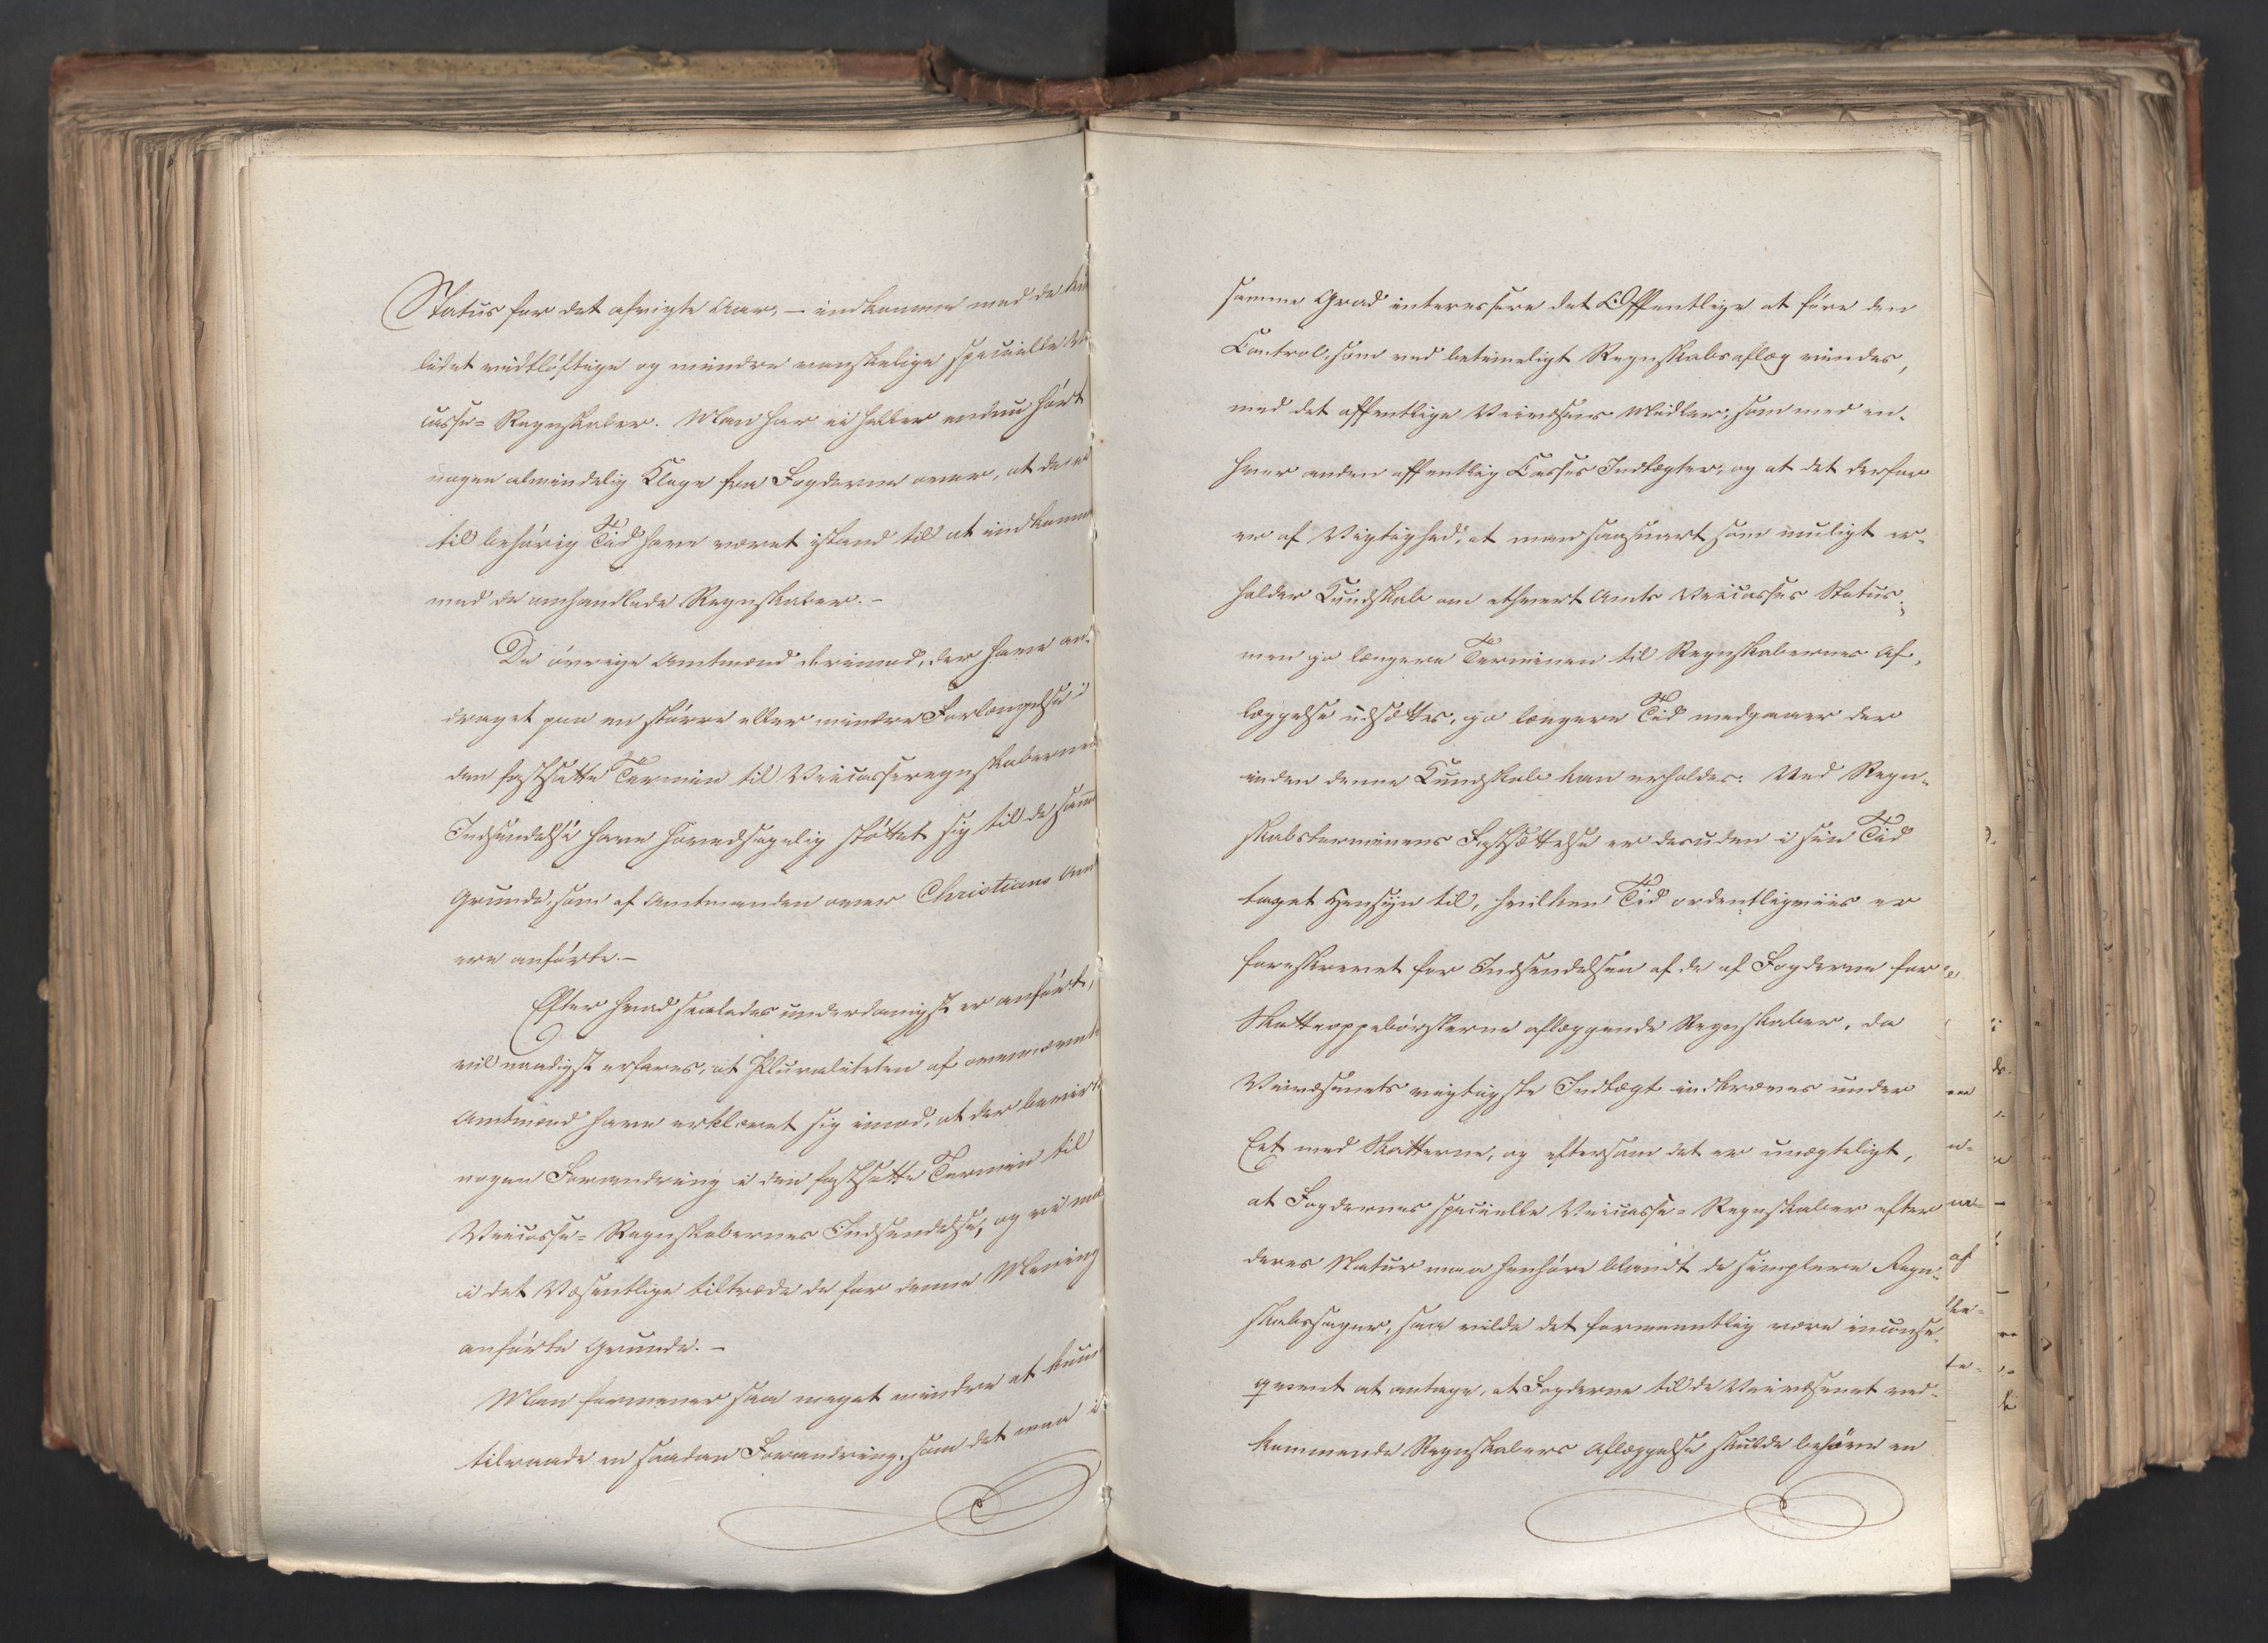 Status for det afvigte Aar, – indkomme med de
lidet vidtløftige og mindre vanskelige specielle
casse-Regnskaber. Man har ei heller endnu hørt
nogen almindelig Klage fra Fogderne over, at de ei
til behørig Tid have været istand til at indkomme
med de omhandlede Regnskaber. –
De øvrige Amtmænd derimod, der have an-
draget paa en større eller mindre Forlængelse i
den fastsatte Termin til Veicasseregnskabernes
Indsendelse have hovedsagelig støttet sig til de samme
Grunde, som af Amtmanden over Christians Amt
ere anførte. –
Efter hvad saaledes underdanigst er anført,
vil naadigst erfares, at Pluraliteten af ovennævnte
Amtmænd have erklæret sig imod, at der bevirkes
nogen Forandring i den fastsatte Termin til
Veicasse-Regnskabernes Indsendelse, og vi maa
i det Væsentlige tiltræde de for denne Mening
anførte Grunde. –
Man formener saa meget mindre at kunne
tilraade en saadan Forandring, som det maa i
samme Grad interessere det Offentlige at føre den
Control, som ved betimeligt Regnskabsaflæg vindes,
med det offentlige Veivæsens Midler, som med en-
hver anden offentlig Casses Indtægter, og at det derfor
er af Vigtighed, at man saasnart som muligt er-
holder Kundskab om ethvert Amts Veicasses Status;
men jo længere Terminen til Regnskabernes Af-
læggelse udsættes, jo længere Tid medgaaer der
inden denne Kundskab kan erholdes. Ved Regn-
skabsterminens Fastsættelse er desuden i sin Tid
taget Hensyn til, hvilken Tid ordentligviis er
foreskrevet for Indsendelsen af de af Fogderne for
Skatteoppebørslerne aflæggende Regnskaber, da
Veivæsenets vigtigste Indtægt indkræves under
Eet med Skatterne, og eftersom det er unægteligt,
at Fogdernes specielle Veicasse-Regnskaber efter
deres Natur maa henhøre blandt de simplere Regn-
skabssager, saa vilde det formeentlig være inconse-
qvent at antage, at Fogderne til de Veivæsenet ved-
kommende Regnskabers Aflæggelse skulde behøve en